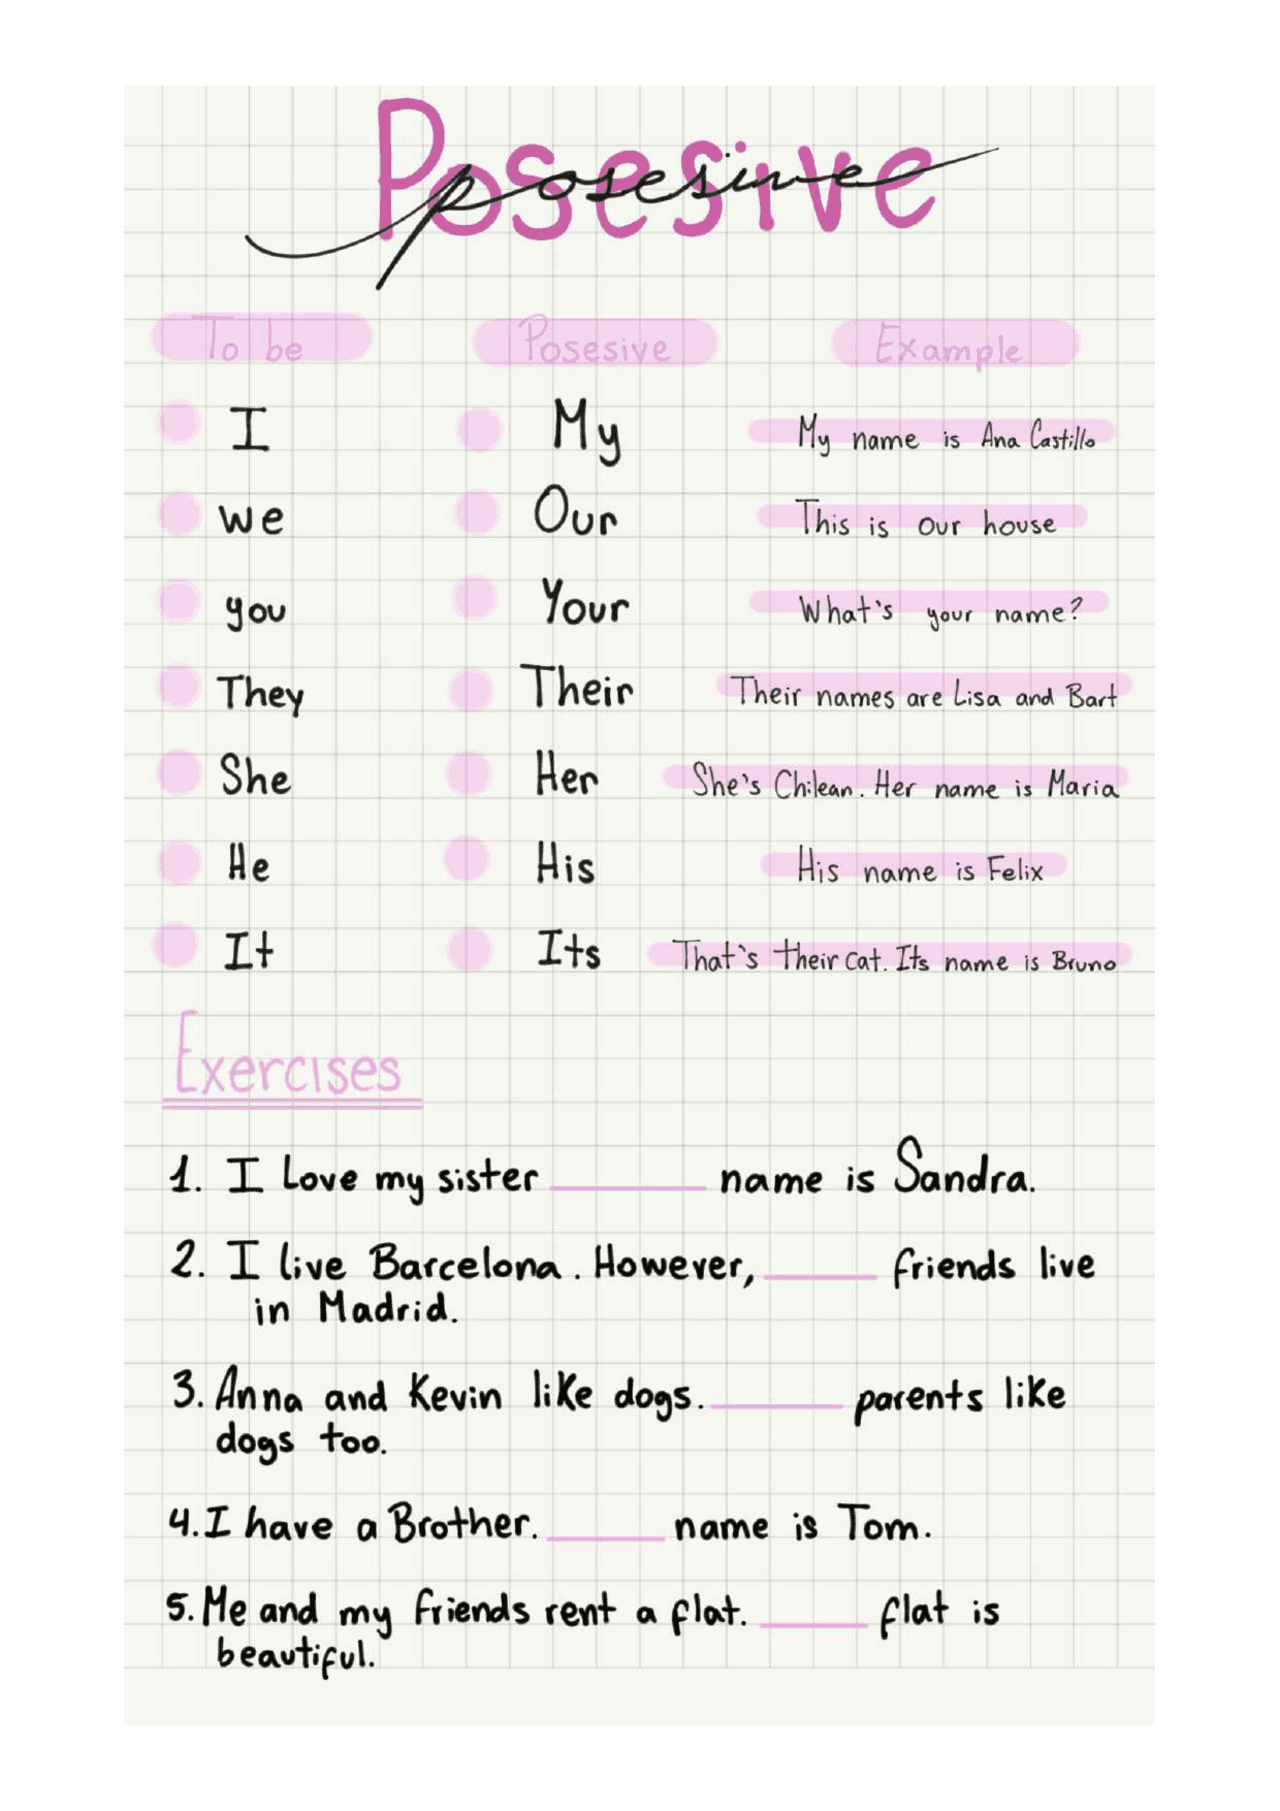 Posesive
posesive
To be Posesive Example
I My My name is Ana Castillo
we Our This is our house
you Your What's your name?
They Their Their names are Lisa and Bart
She Her She's Chilean. Her name is Maria
He His His name is Felix
It Its That's their cat. Its name is Bruno
Exercises
1. I Love my sister ______ name is Sandra.
2. I live Barcelona. However, ______ friends live
in Madrid.
3. Anna and Kevin like dogs. ______ parents like
dogs too.
4. I have a Brother. ______ name is Tom.
5. Me and my friends rent a flat. ______ flat is
beautiful.